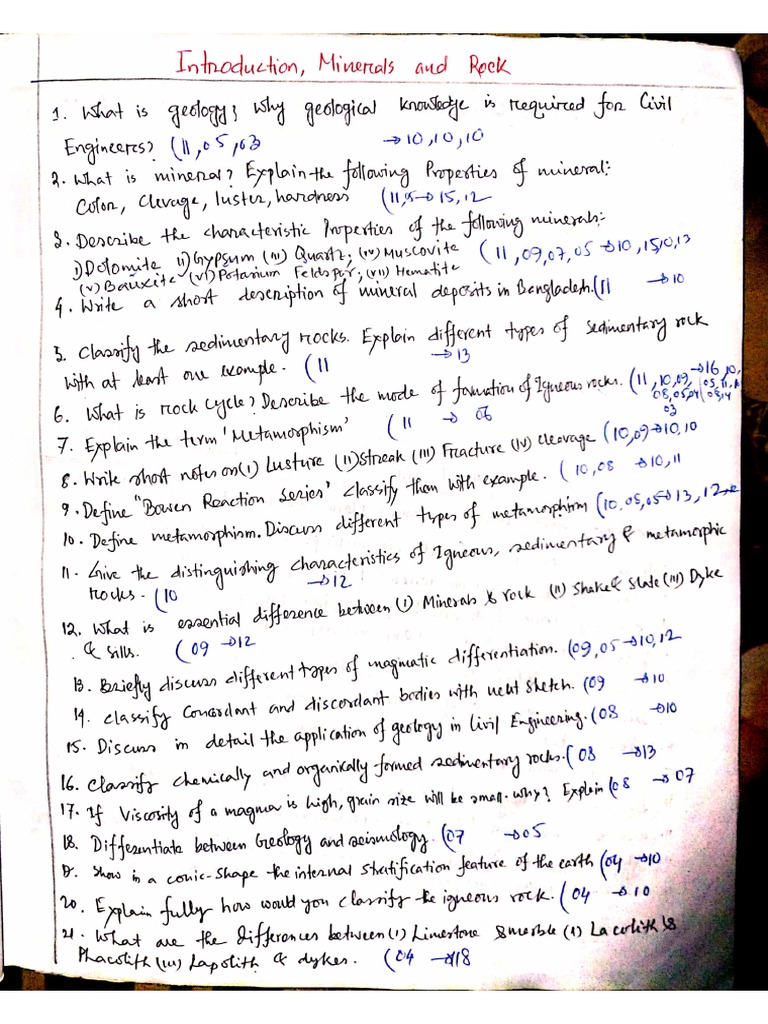 Introduction, Minerals and Rock
1. What is geology; Why geological knowledge is required for Civil
Engineers? (11,05,03 →10,10,10
2. What is mineral? Explain the following Properties of mineral:
Color, Clevage, luster, hardness (11,5→15,12
3. Describe the characteristic Properties of the following minerals:-
i) Dolomite ii) Gypsum (iii) Quartz; (iv) Muscovite (11,09,07,05→10,15,10,13
(v) Bauxite (vi) Potasium Feldspar; (vii) Hematite
4. Write a short description of mineral deposits in Bangladesh. (11 →10
5. Classify the sedimentary rocks. Explain different types of sedimentary rock
with at least one example. (11 →13
6. What is rock cycle? Describe the mode of formation of Igneous rocks. (11,10,09, →16,10,
08,05,04
03
7. Explain the term 'Metamorphism' (11 → 06
8. Write short notes on (i) Lusture (ii) Streak (iii) Fracture (iv) cleavage (10,09→10,10
9. Define "Bowen Reaction Series' classify them with example. (10,08 →10,11
10. Define metamorphism. Discuss different types of metamorphism (10,08,05→13,12
11. Give the distinguishing characteristics of Igneous, sedimentary & metamorphic
rocks. (10 →12
12. What is essential difference between (i) Minerals & rock (ii) Shake & Slate (iii) Dyke
& Sills. (09 →12
13. Briefly discuss different types of magmatic differentiation. (09,05→10,12
14. Classify Concordant and discordant bodies with neat Sketch. (09 →10
15. Discuss in detail the application of geology in Civil Engineering. (08 →10
16. Classify chemically and organically formed sedimentary rocks. (08 →13
17. If Viscosity of a magma is high, grain size will be small. why? Explain (08 →07
18. Differentiate between Geology and seismology. (07 →05
Show in a conic-shape the internal stratification feature of the earth (04→10
20. Explain fully how would you classify the igneous rock. (04 →10
21. What are the differences between (i) Limestone & merble (ii) Lacolith &
Phacolith (iii) Lapolith & dykes. (04 →18